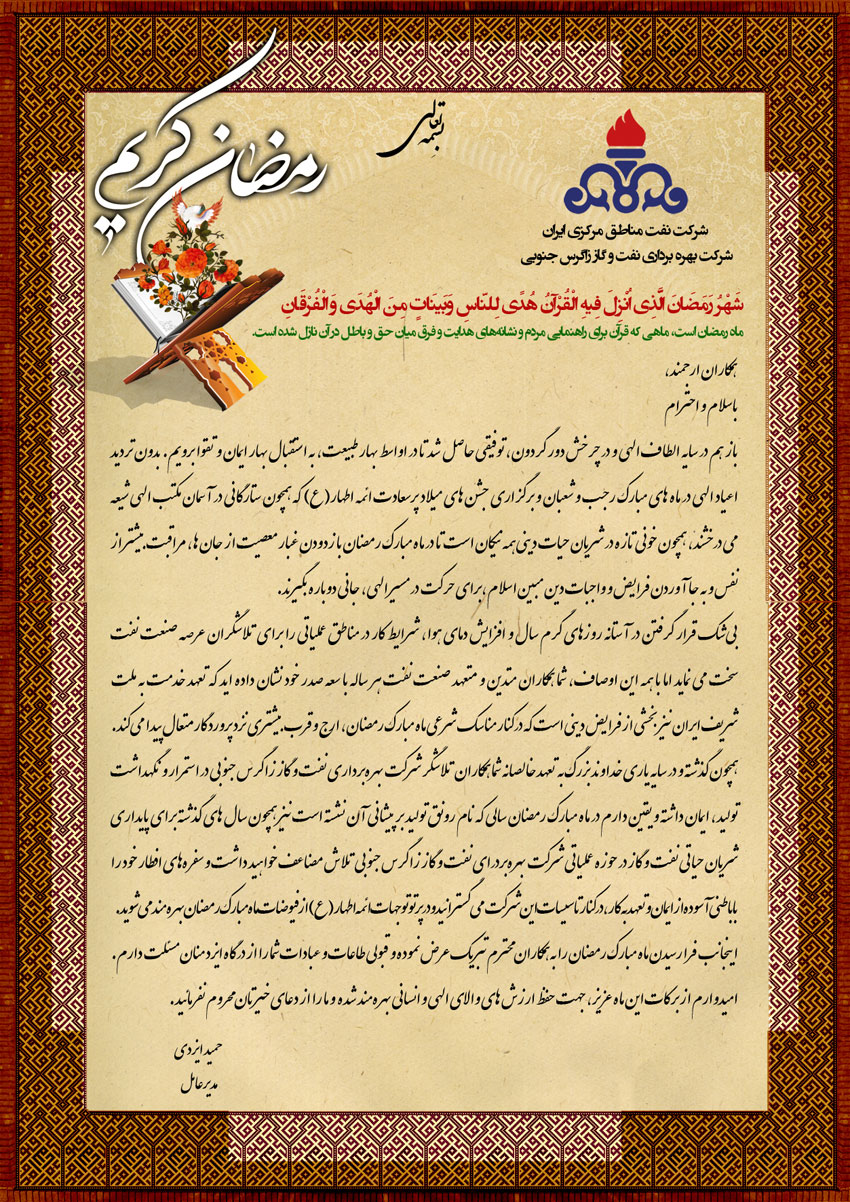 بسمه تعالی
رمضان کریم
شرکت نفت مناطق مرکزی ایران
شرکت بهره برداری نفت و گاز زاگرس جنوبی
شَهْرُ رَمَضَانَ الَّذِی اُنْزِلَ فیهِ الْقُرْآنُ هُدًی لِلنّاسِ وَبَینَاتٍ مِنَ الْهُدَی وَالْفُرْقَانِ
ماه رمضان است، ماهی که قرآن برای راهنمایی مردم و نشانه‌های هدایت و فرق میان حق و باطل در آن نازل شده است.
همکاران ارجمند،
با سلام و احترام
باز هم در سایه الطاف الهی و در چرخش دور گردون، توفیقی حاصل شد تا در اواسط بهار طبیعت، به استقبال بهار ایمان و تقوا برویم. بدون تردید
اعیاد الهی در ماه های مبارک رجب و شعبان و برگزاری جشن های میلاد پر سعادت ائمه اطهار (ع) که همچون ستارگانی در آسمان مکتب الهی شیعه
می درخشند، همچون خونی تازه در شریان حیات دینی همه نیکان است تا در ماه مبارک رمضان با زدودن غبار معصیت از جان ها، مراقبت بیشتر از
نفس و به جا آوردن فرایض و واجبات دین مبین اسلام، برای حرکت در مسیر الهی، جانی دوباره بگیرند.
بی شک قرار گرفتن در آستانه روزهای گرم سال و افزایش دمای هوا، شرایط کار در مناطق عملیاتی را برای تلاشگران عرصه صنعت نفت
سخت می نماید اما با همه این اوصاف، شما همکاران متدین و متعهد صنعت نفت هر ساله با سعه صدر خود نشان داده اید که تعهد خدمت به ملت
شریف ایران نیز بخشی از فرایض دینی است که در کنار مناسک شرعی ماه مبارک رمضان، ارج و قرب بیشتری نزد پروردگار متعال پیدا می کند.
همچون گذشته و در سایه یاری خداوند بزرگ به تعهد خالصانه شما همکاران تلاشگر شرکت بهره برداری نفت و گاز زاگرس جنوبی در استمرار و نگهداشت
تولید، ایمان داشته و یقین دارم در ماه مبارک رمضان سالی که نام رونق تولید بر پیشانی آن نشسته است نیز همچون سال های گذشته برای پایداری
شریان حیاتی نفت و گاز در حوزه عملیاتی شرکت بهره بردرای نفت و گاز زاگرس جنوبی تلاش مضاعف خواهید داشت و سفره های افطار خود را
با باطنی آسوده از ایمان و تعهد به کار، در کنار تاسیسات این شرکت می گسترانید و در پرتو توجهات ائمه اطهار (ع) از فیوضات ماه مبارک رمضان بهره مند می شوید.
اینجانب فرا رسیدن ماه مبارک رمضان را به همکاران محترم تبریک عرض نموده و قبولی طاعات و عبادات شما را از درگاه ایزد منان مسئلت دارم.
امیدوارم از برکات این ماه عزیز، جهت حفظ ارزش های والای الهی و انسانی بهره مند شده و ما را از دعای خیرتان محروم نفرمائید.
حمید ایزدی
مدیر عامل